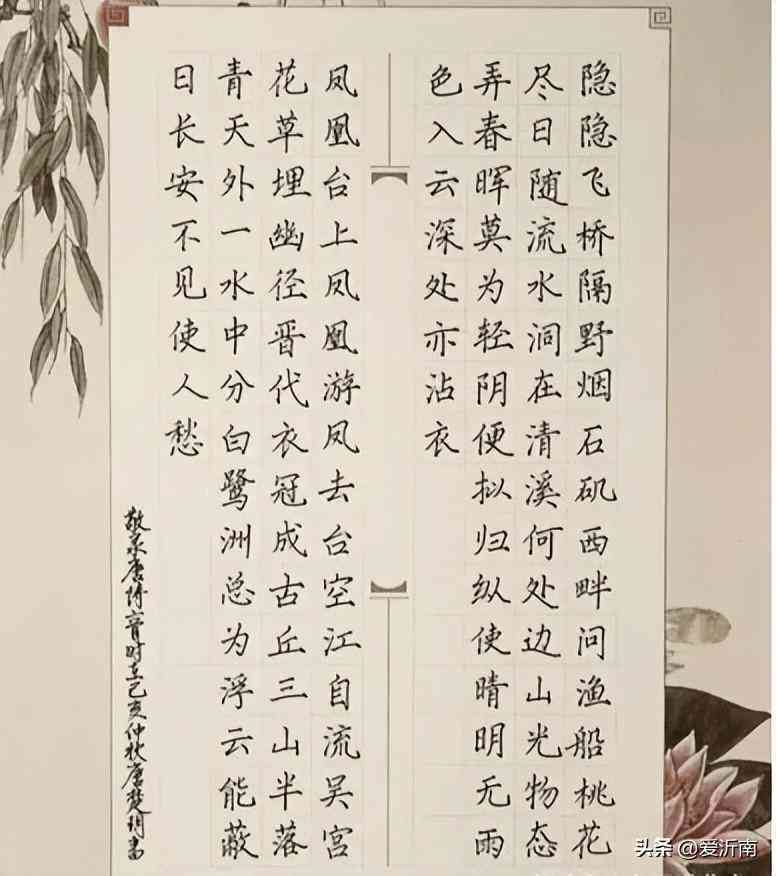 隐隐飞桥隔野烟石矶西畔问渔船桃花
尽日随流水洞在清溪何处边山光物态
弄春晖莫为轻阴便拟归纵使晴明无雨
色入云深处亦沾衣
凤凰台上凤凰游凤去台空江自流吴宫
花草埋幽径晋代衣冠成古丘三山半落
青天外一水中分白鹭洲总为浮云能蔽
日长安不见使人愁
敬录唐诗二首时在己亥仲秋唐楚书
头条 @爱沂南